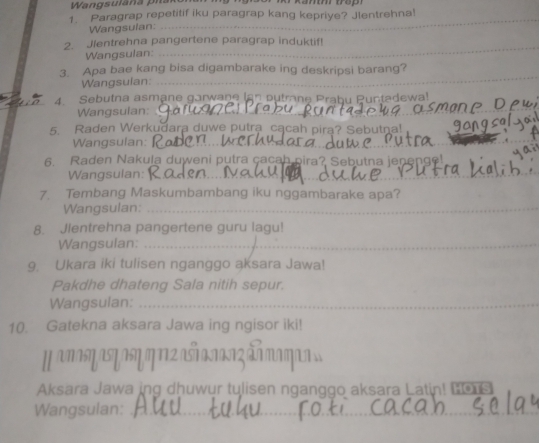 Wangsulana
1. Paragrap repetitif iku paragrap kang kepriye? Jlentrehna!
Wangsulan:
2. Jlentrehna pangertene paragrap induktif!
Wangsulan:
3. Apa bae kang bisa digambarake ing deskripsi barang?
Wangsulan:
4. Sebutna asmane garwane lan putrane Prabu Puntadewa!
Wangsulan: garwane Prabu Puntadewa asmane Dewi
5. Raden Werkudara duwe putra cacah pira? Sebutna!
Wangsulan: Raden werkudara duwe Putra
6. Raden Nakula duweni putra cacah pira? Sebutna jenenge!
Wangsulan: Raden Nakula duwe Putra kalih.
7. Tembang Maskumbambang iku nggambarake apa?
Wangsulan:
8. Jlentrehna pangertene guru lagu!
Wangsulan:
9. Ukara iki tulisen nganggo aksara Jawa!
Pakdhe dhateng Sala nitih sepur.
Wangsulan:
10. Gatekna aksara Jawa ing ngisor iki!
Aksara Jawa ing dhuwur tulisen nganggo aksara Latin! HOTS
Wangsulan: tuku roti cacah